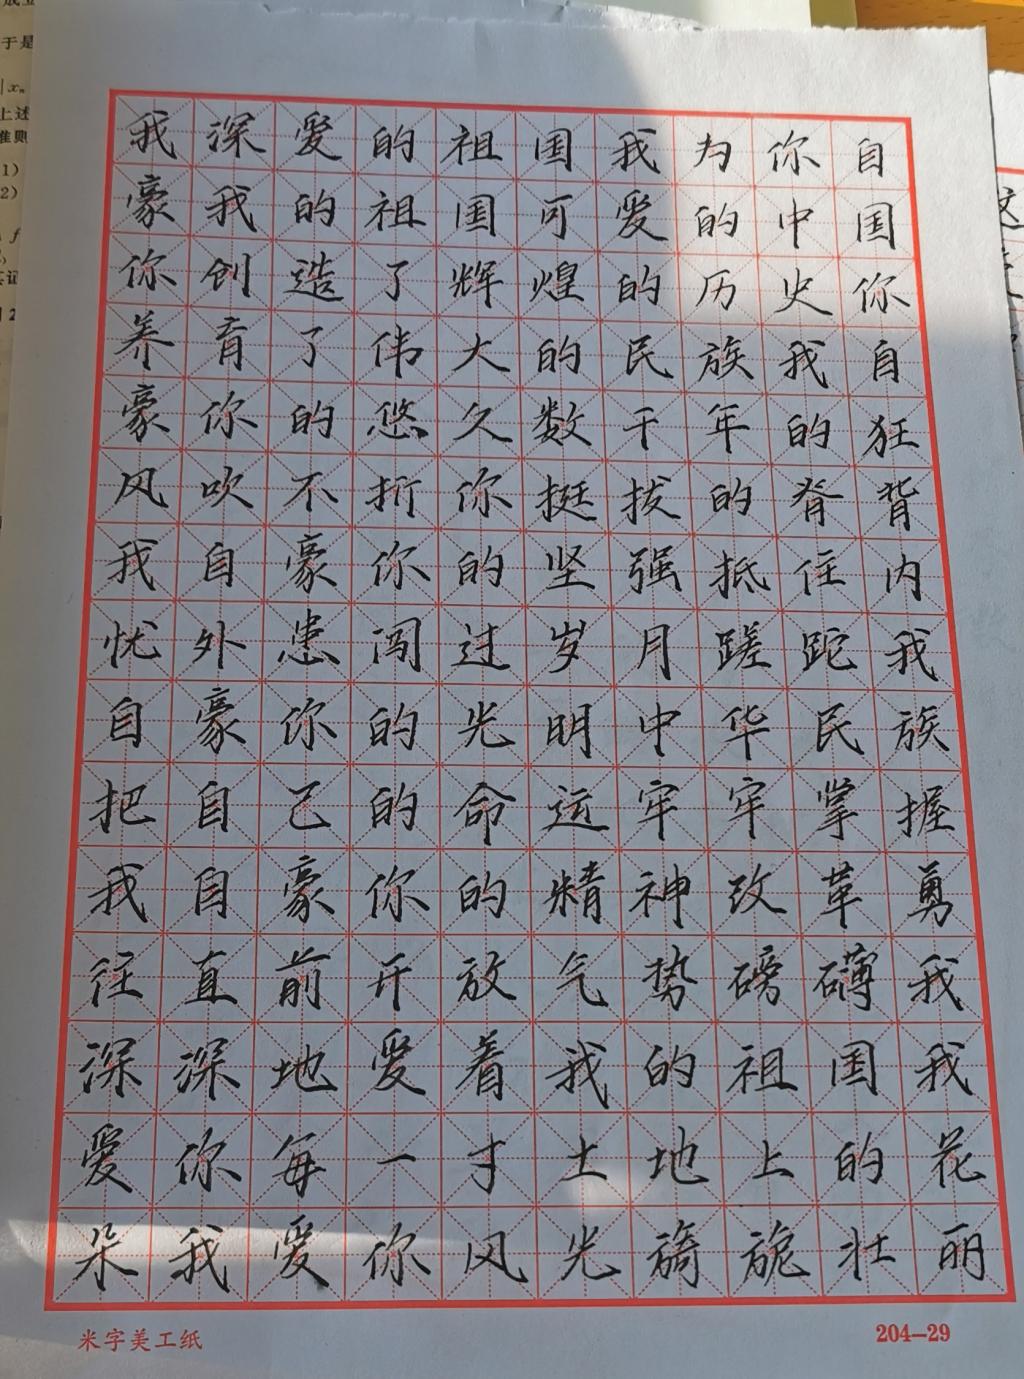 成立
于是
|xₙ
上述
准则
1)
2)
我深爱的祖国我为你自
豪我的祖国可爱的中国
你创造了辉煌的历史你
养育了伟大的民族我自
豪你的悠久数千年的狂
风吹不折你挺拔的脊背
我自豪你的坚强抵住内
忧外患闯过岁月蹉跎我
自豪你的光明中华民族
把自己的命运牢牢掌握
我自豪你的精神改革勇
往直前开放气势磅礴我
深深地爱着我的祖国我
爱你每一寸土地上的花
朵我爱你风光旖旎壮丽
米字美工纸
204—29
这